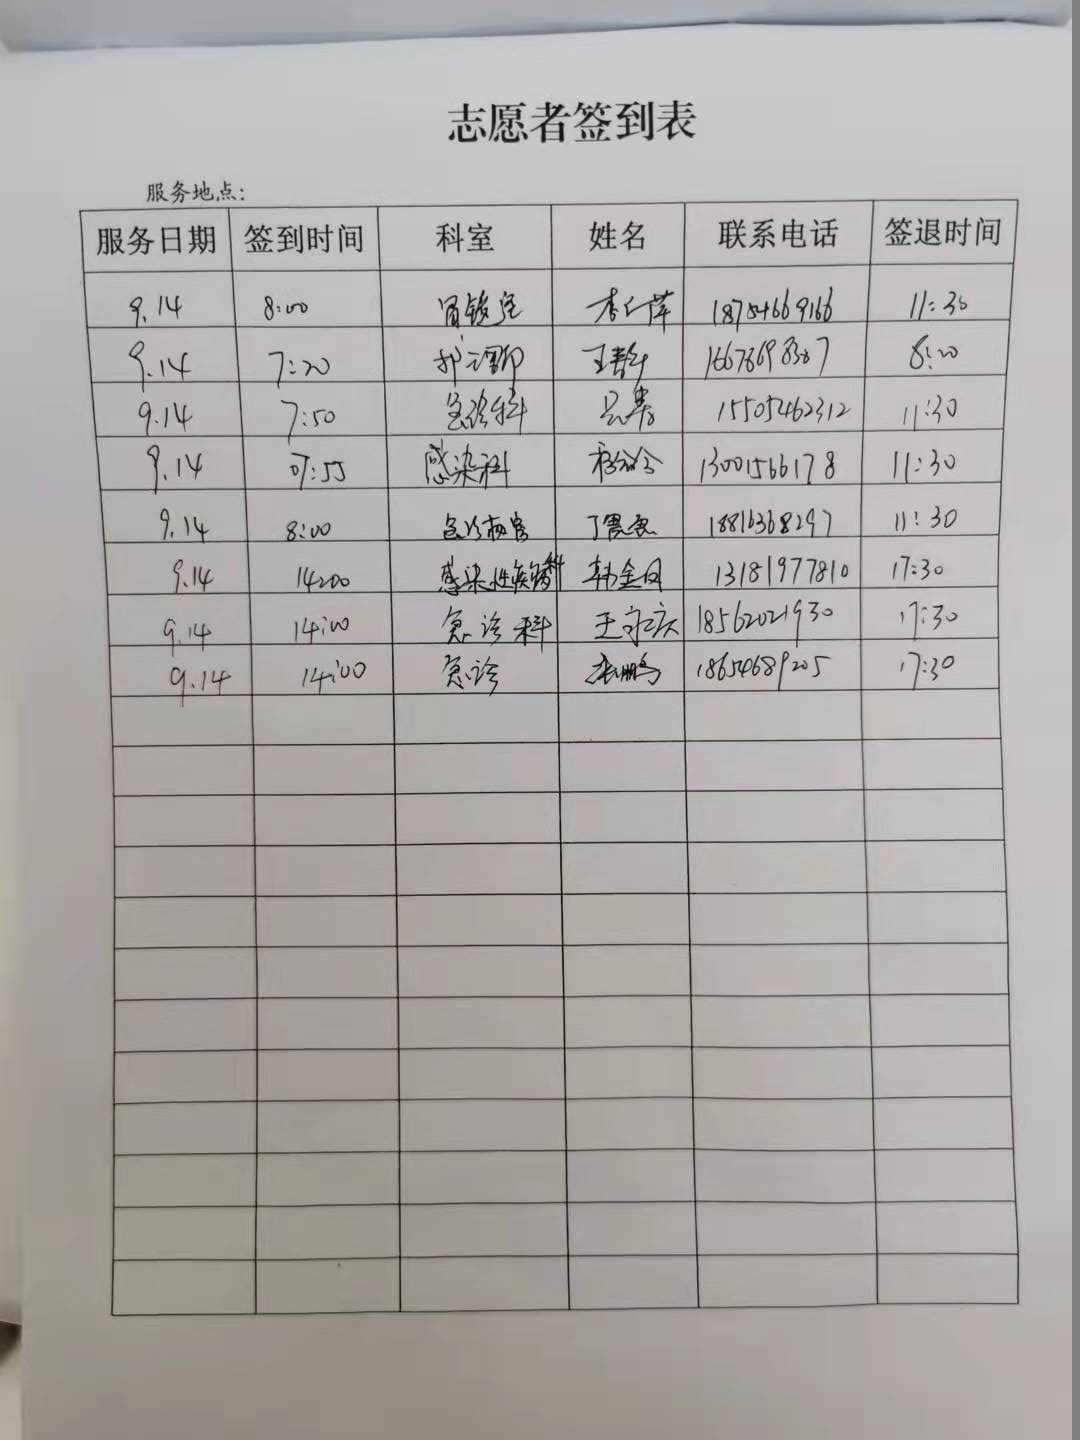 志愿者签到表
服务地点:
服务日期 签到时间 科室 姓名 联系电话 签退时间
9.14 8:00 胃镜室 李仁萍 18754669166 11:30
9.14 7:20 护理部 王 8:20
9.14 7:50 急诊科 15505462312 11:30
9.14 07:55 感染科 13001566178 11:30
9.14 8:00 丁 18816368297 11:30
9.14 14:00 感染性疾病科 韩金凤 13181977810 17:30
9.14 14:00 急诊科 王守庆 18562021930 17:30
9.14 14:00 急诊 张鹏 18654689205 17:30